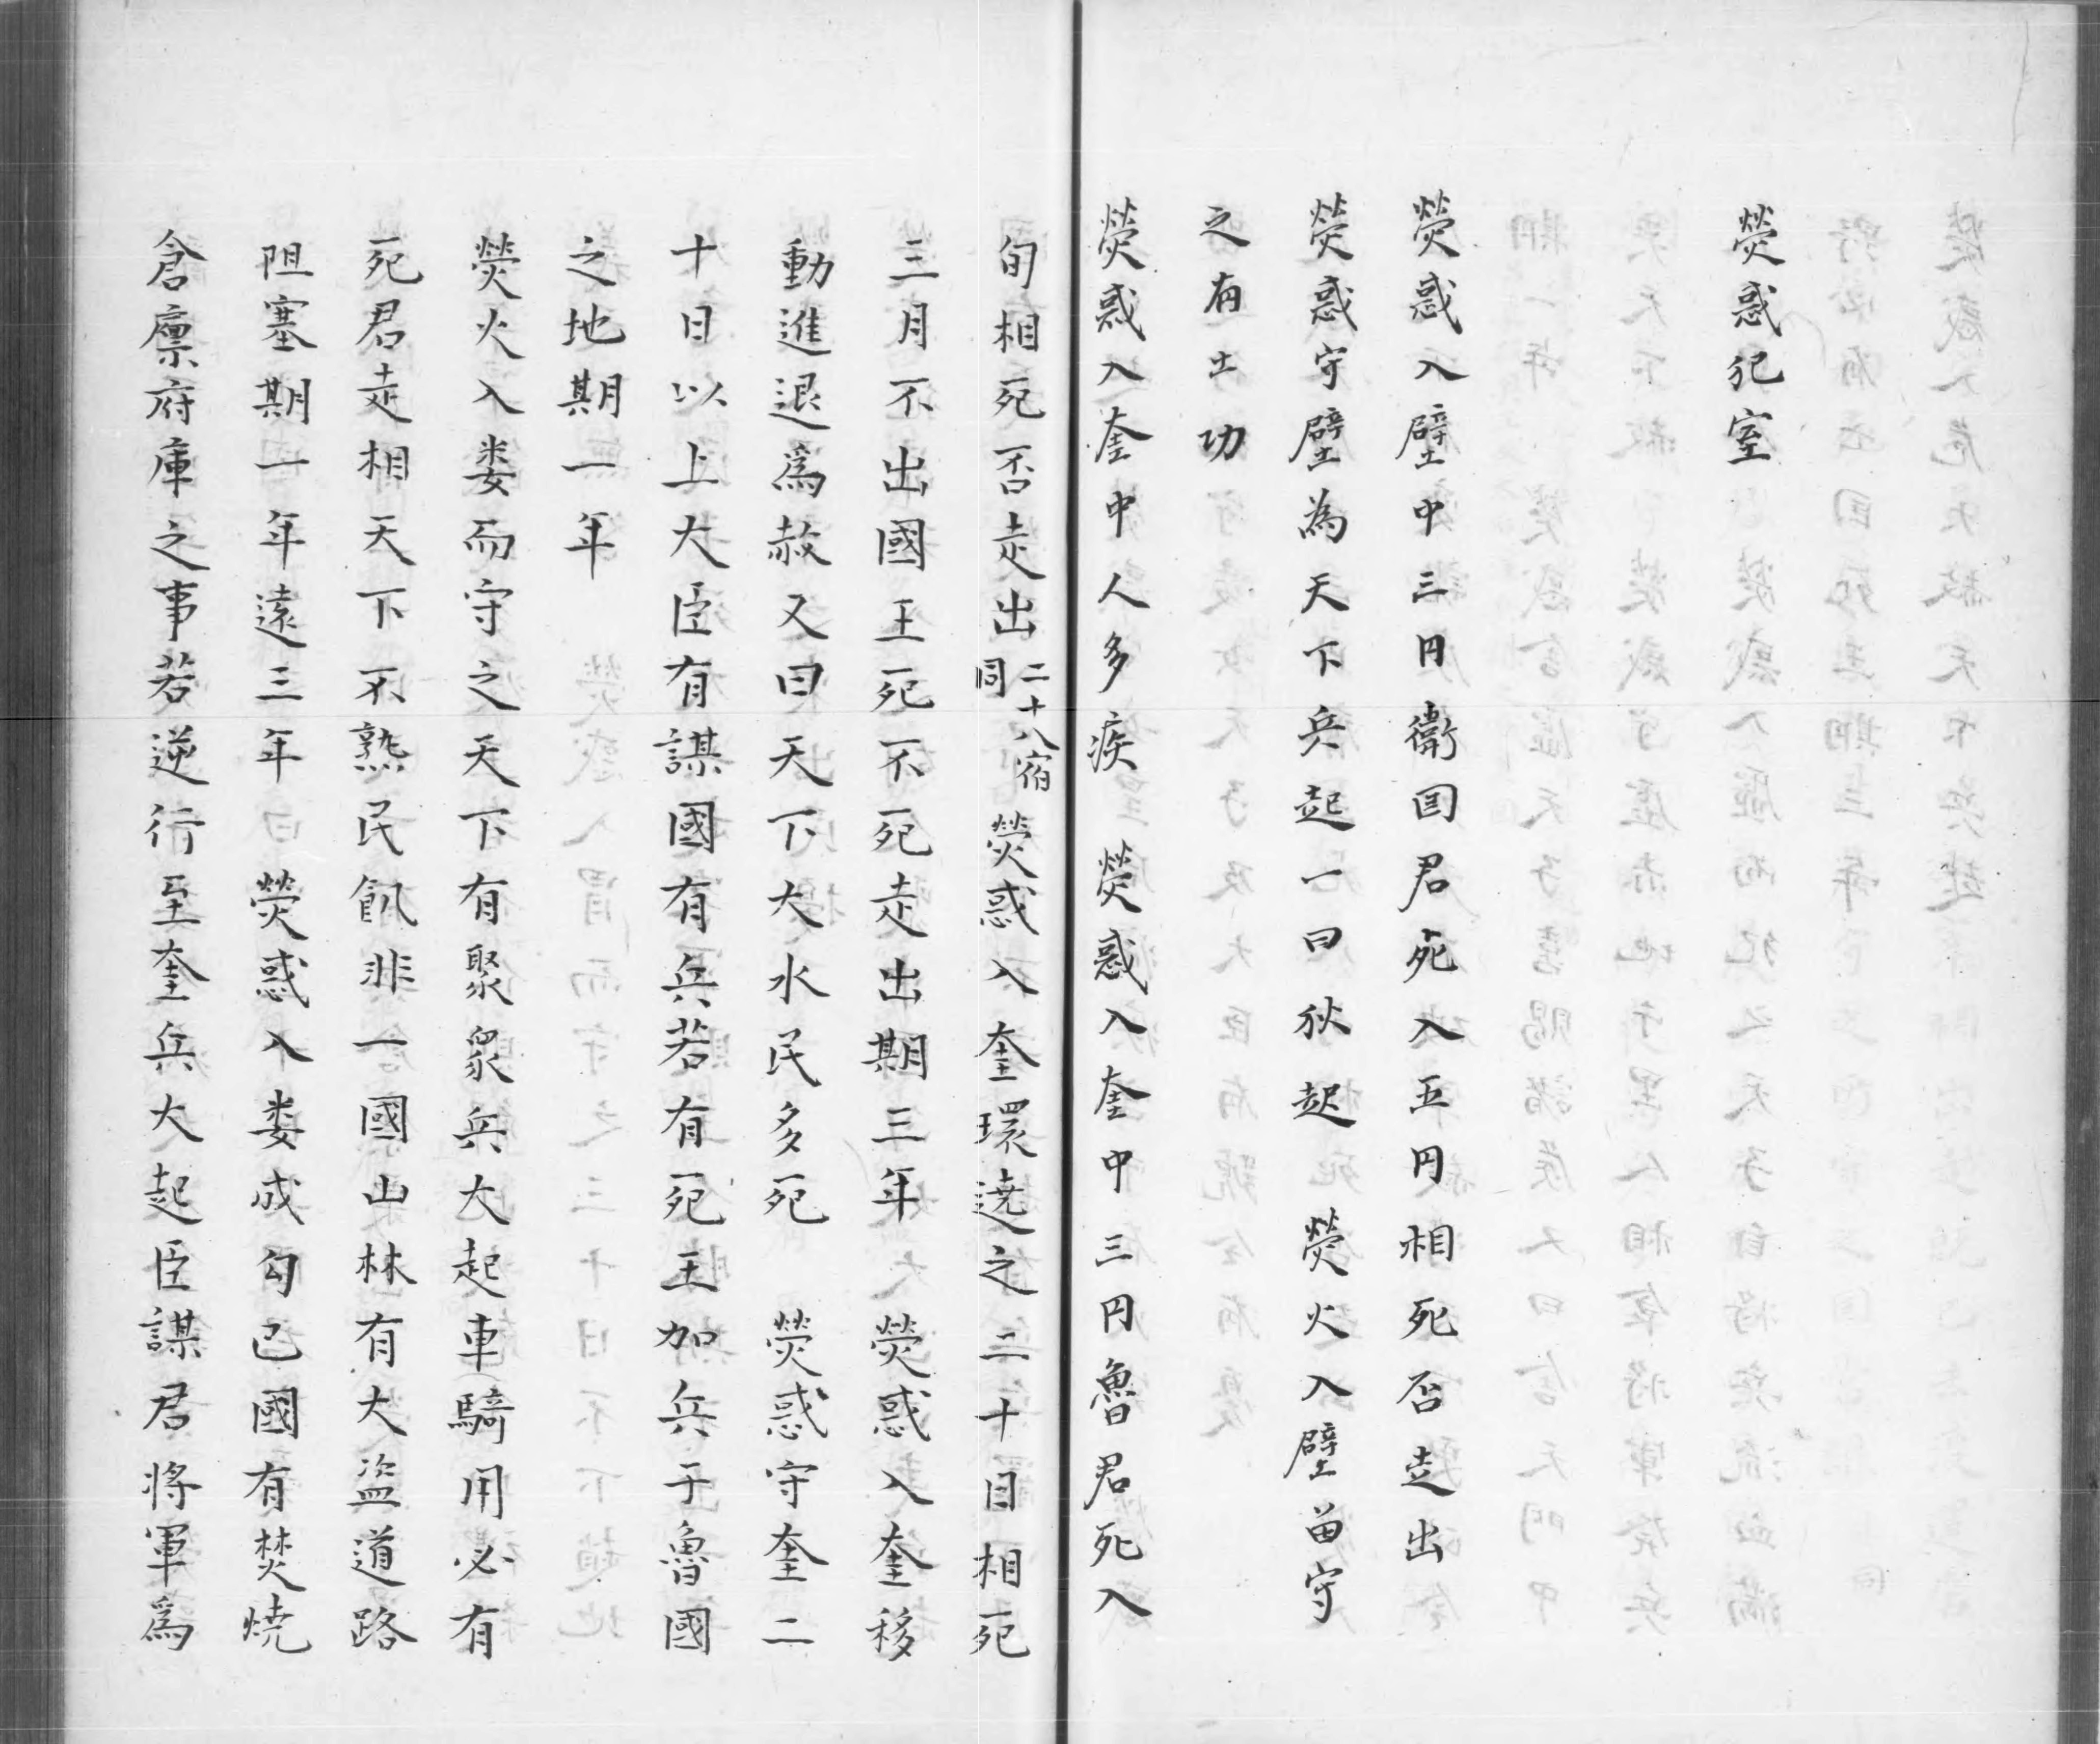 熒惑犯室
熒惑入壁中三円衛囯君死入五円相死否走出
熒惑守壁為天下兵起一曰狄起　熒火入壁留守
之有土功
熒惑入奎中人多疾　熒惑入奎中三円魯君死入
旬相死否走出二十八宿同　熒惑入奎環遶之二十日相死
三月不出國王死不死走出期三年　熒惑入奎移
動進退爲赦又曰天下大水民多死　熒惑守奎二
十日以上大臣有謀國有兵若有死王加兵于魯國
之地期一年
熒火入婁而守之天下有聚衆兵大起車騎用必有
死君走相天下不熟民飢非一國山林有大盗道路
阻塞期一年遠三年　熒惑入婁成勾已國有焚燒
倉廪府庫之事若逆行至奎兵大起臣謀君将軍爲